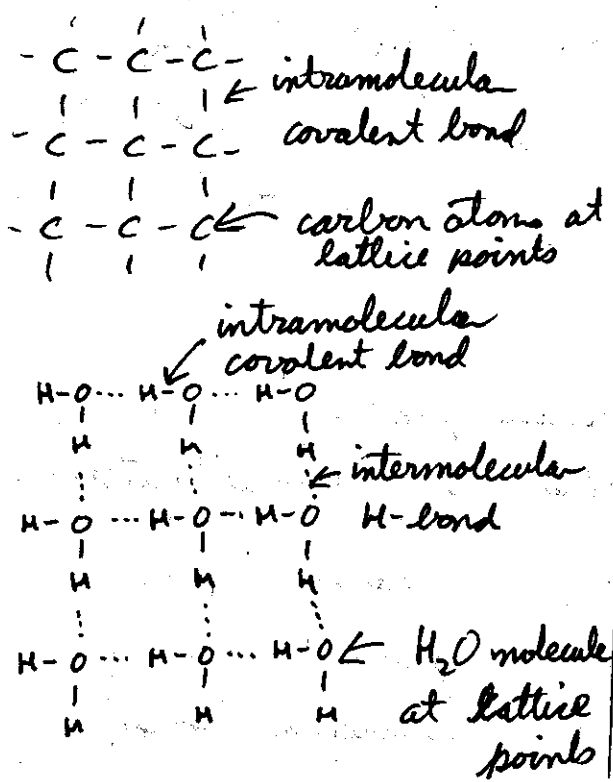 - C - C - C -
intramolecular
covalent bond
- C - C - C -
- C - C - C
carbon atoms at
lattice points
intramolecular
covalent bond
H-O ... H-O ... H-O
H H H
intermolecular
H-O ... H-O ... H-O
H-bond
H H H
H-O ... H-O ... H-O
H₂O molecule
H H H
at lattice
points